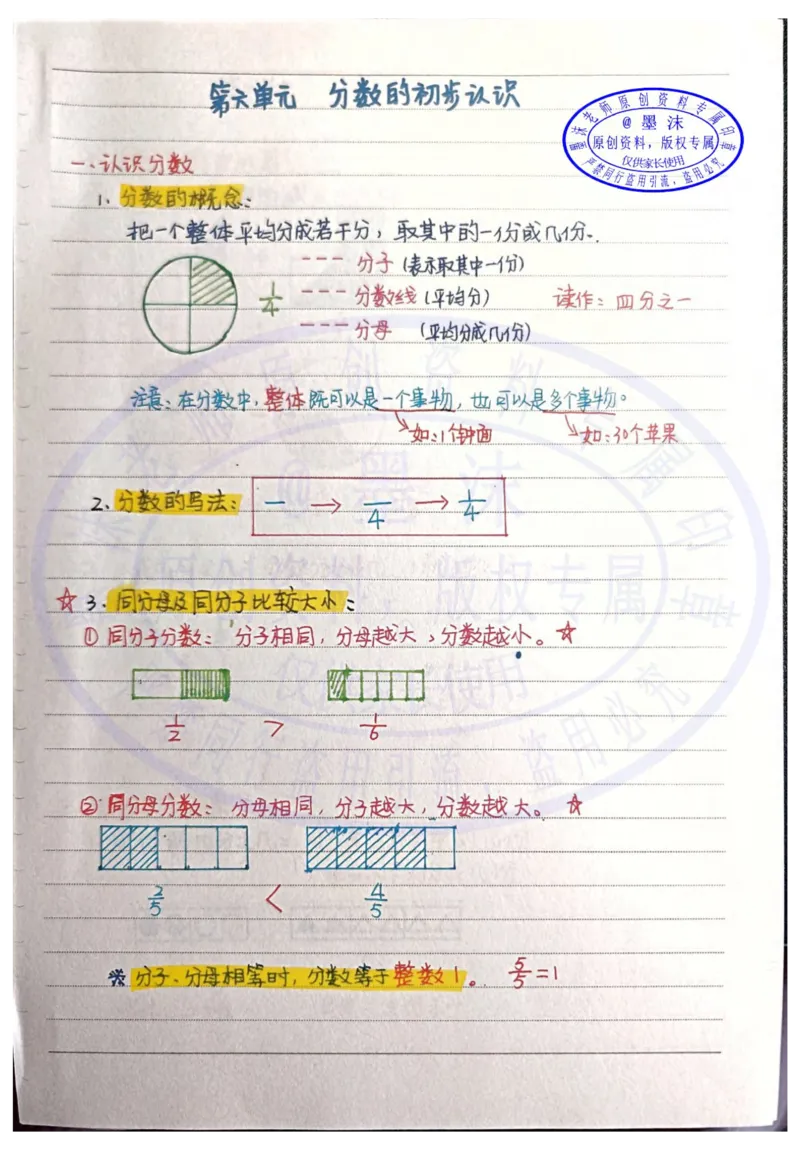 第六单元 分数的初步认识
墨沫老师原创资料专属印章
@墨沫
原创资料，版权专属
仅供家长使用
严禁同行盗用引流，盗用必究
一、认识分数
1、分数的概念：
把一个整体平均分成若干分，取其中的一分或几份．
1/4
--- 分子（表示取其中一份）
--- 分数线（平均分）
读作：四分之一
--- 分母（平均分成几份）
注意：在分数中，整体既可以是一个事物，也可以是多个事物。
如：1个钟面
如：30个苹果
2、分数的写法：
— → —/4 → 1/4
☆ 3. 同分母及同分子比较大小：
① 同分子分数：分子相同，分母越大，分数越小。☆
1/2 > 1/6
② 同分母分数：分母相同，分子越大，分数越大。☆
2/5 < 4/5
※ 分子、分母相等时，分数等于整数1。 5/5=1
墨沫老师原创资料专属印章
@墨沫
原创资料，版权专属
仅供家长使用
严禁同行盗用引流，盗用必究